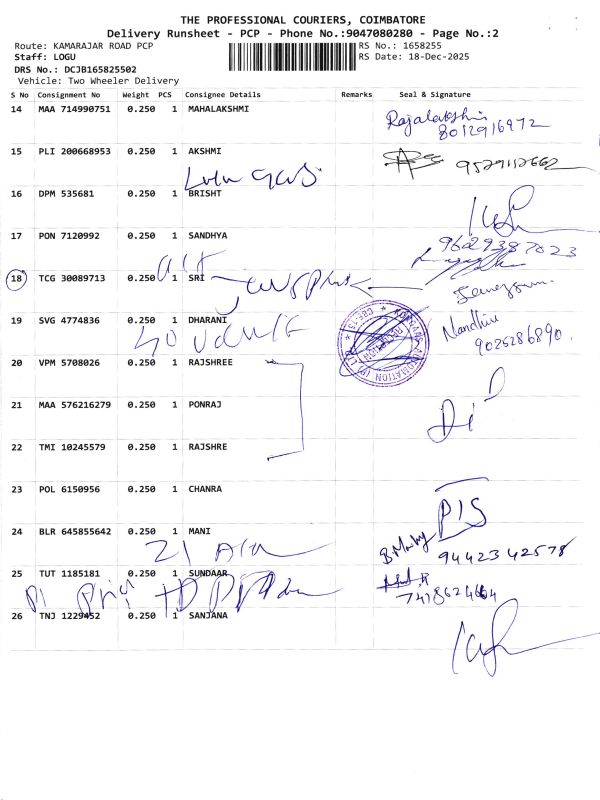 THE PROFESSIONAL COURIERS, COIMBATORE
Delivery Runsheet - PCP - Phone No.:9047080280 - Page No.:2
Route: KAMARAJAR ROAD PCP
RS No.: 1658255
Staff: LOGU
RS Date: 18-Dec-2025
DRS No.: DCJB165825502
Vehicle: Two Wheeler Delivery
S No Consignment No Weight PCS Consignee Details Remarks Seal & Signature
14 MAA 714990751 0.250 1 MAHALAKSHMI
Rajalakshmi
8012916972
15 PLI 200668953 0.250 1 AKSHMI
9529112662
16 DPM 535681 0.250 1 BRISHT
17 PON 7120992 0.250 1 SANDHYA
9629387023
18 TCG 30089713 0.250 1 SRI
19 SVG 4774836 0.250 1 DHARANI
Nandhini
9025286890.
20 VPM 5708026 0.250 1 RAJSHREE
21 MAA 576216279 0.250 1 PONRAJ
22 TMI 10245579 0.250 1 RAJSHRE
23 POL 6150956 0.250 1 CHANRA
24 BLR 645855642 0.250 1 MANI
9442342578
25 TUT 1185181 0.250 1 SUNDAAR
7418624664
26 TNJ 1229452 0.250 1 SANJANA